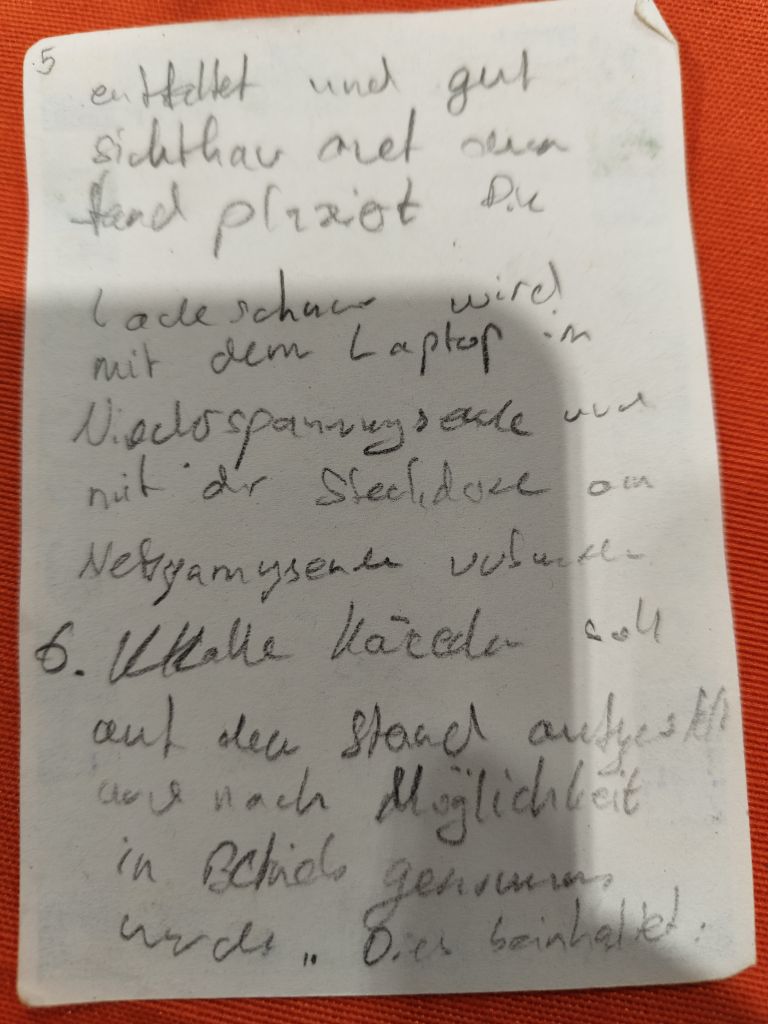 5
entfaltet und gut
sichtbar auf dem
Stand plaziert Die
Ladeschnur wird
mit dem Laptop in
Niederspannungsende und
mit der Steckdose am
Netzgangsende verbunden
6. Kalle soll
auf den Stand aufgestellt
und nach Möglichkeit
in Betrieb genommen
werden.. Dies beinhaltet: